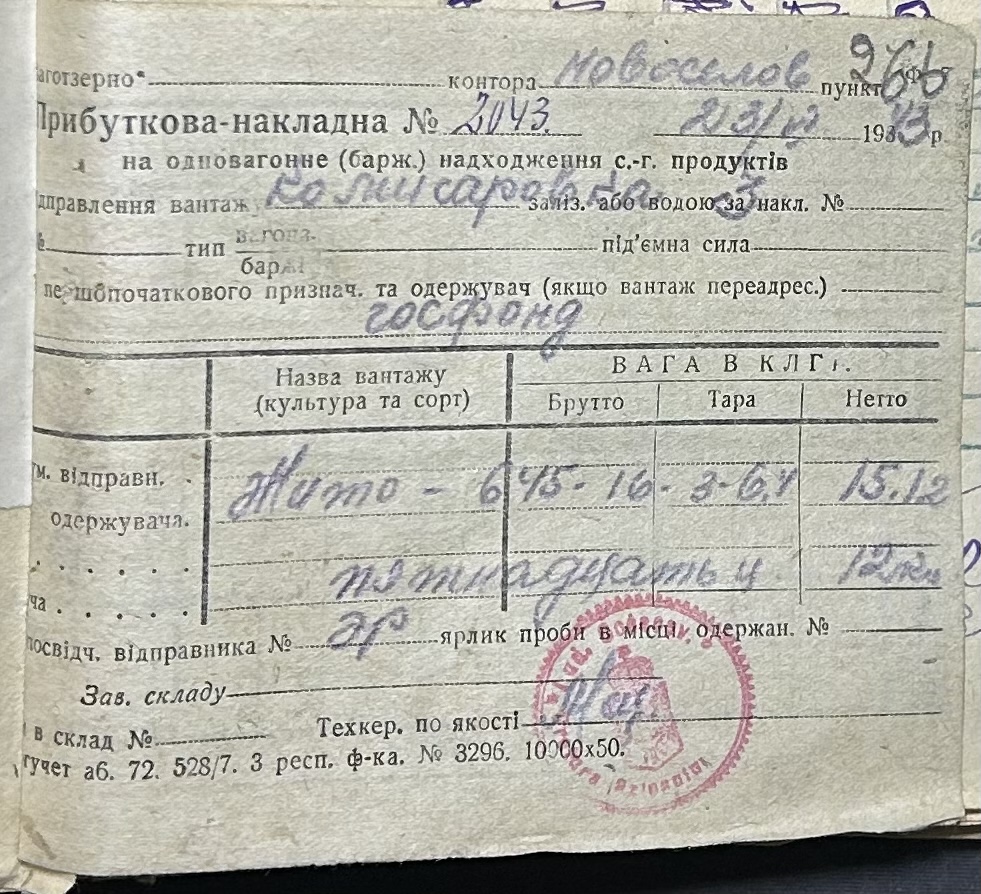 аготзерно" контора Новоселов пункт
Прибуткова-накладна № 2043. 23/ 1943 р
на одновагонне (барж.) надходження с.-г. продуктів
дправлення вантаж Комисаровка заліз. або водою за накл. № 3
№ тип вагона. підʼємна сила
баржі
першопочаткового признач. та одержувач (якщо вантаж переадрес.)
госфонд
Назва вантажу ВАГА В КЛГ.
(культура та сорт) Брутто Тара Нетто
м. відправн. Жито - 645- 16- 3-64 15.12
одержувача.
пятнадцать ц. 12 кг
ча
посвідч. відправника № ярлик проби в місці одержан. №
Зав. складу
в склад № Техкер. по якості
гучет аб. 72. 528/7. 3 респ. ф-ка. № 3296. 10000х50.